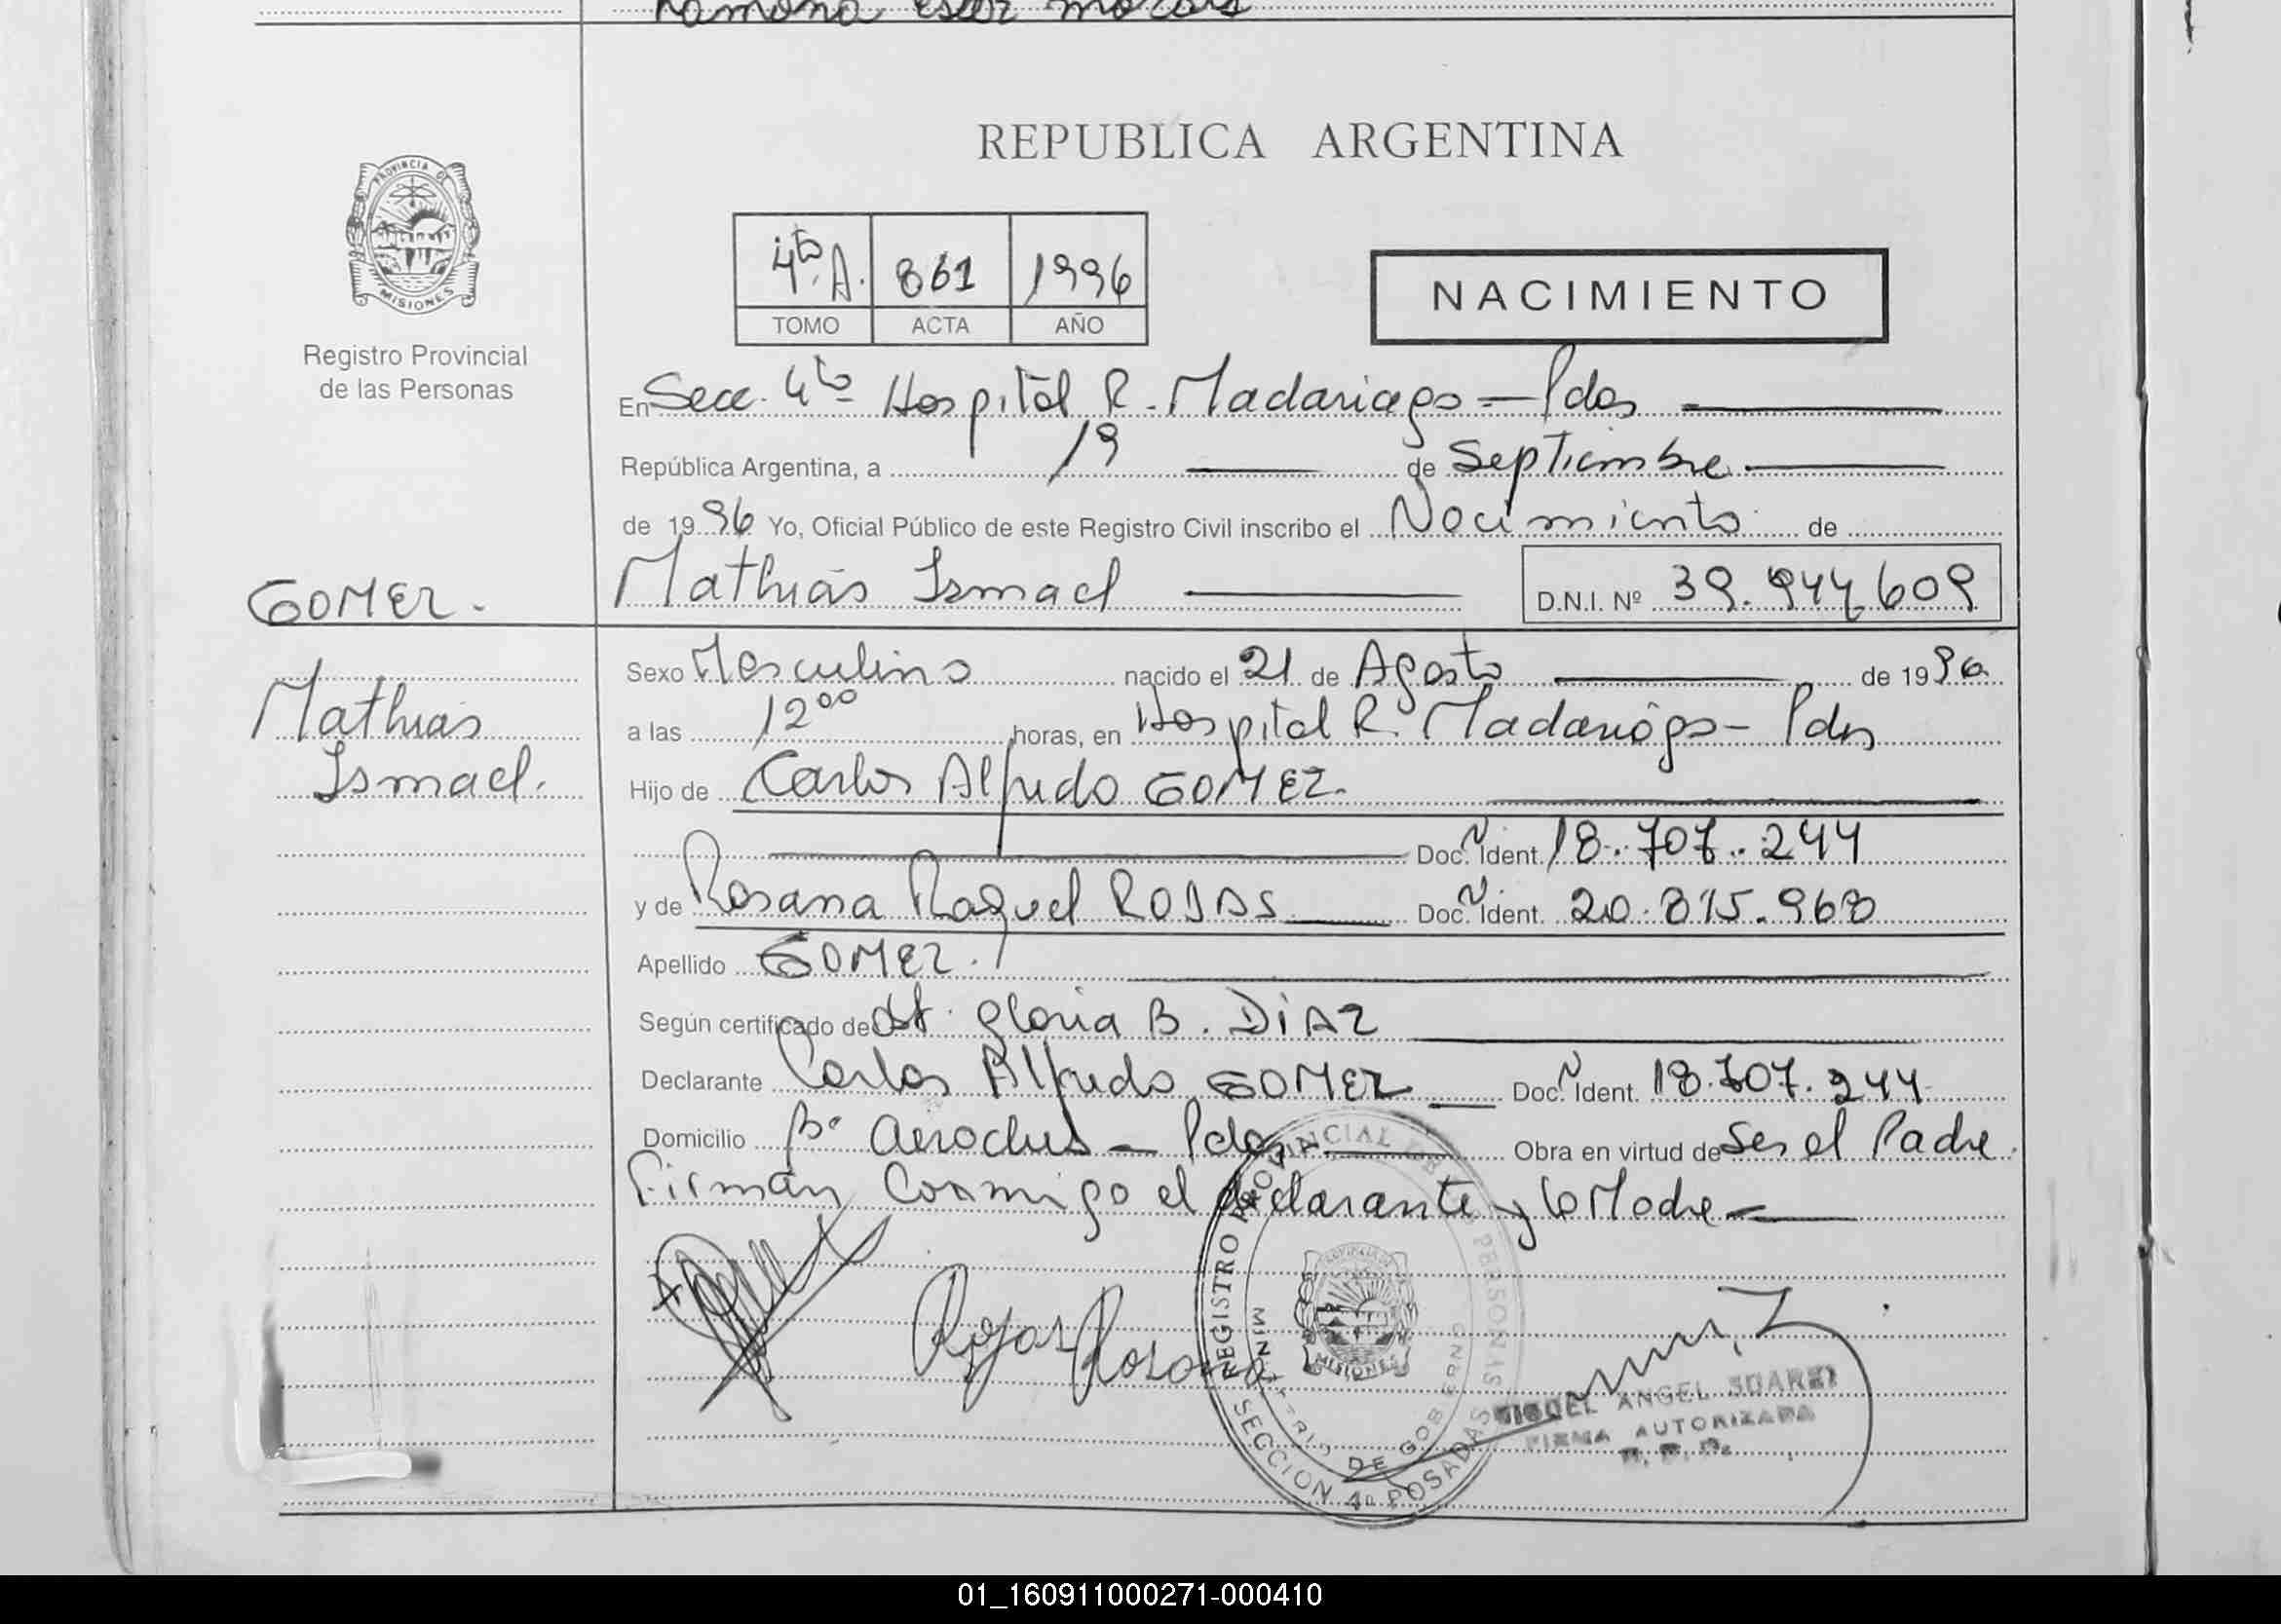 Ramona Ester
REPUBLICA ARGENTINA
PROVINCIA DE
MISIONES
Registro Provincial
de las Personas
4to. A. 861 1996
TOMO ACTA AÑO
NACIMIENTO
En Secc. 4to Hospital R. Madariaga - Pdas
República Argentina, a 19 de Septiembre
de 1996 Yo, Oficial Público de este Registro Civil inscribo el Nacimiento de
GOMEZ.
Mathias Ismael
D.N.I. Nº 39.944.609
Mathias
Ismael.
Sexo Masculino nacido el 21 de Agosto de 1996
a las 12 00 horas, en Hospital R. Madariaga - Pdas
Hijo de Carlos Alfredo GOMEZ.
Doc. Ident. 18.707.244
y de Rosana Raquel ROJAS Doc. Ident. 20.815.968
Apellido GOMEZ.
Según certificado de Obst. Gloria B. DIAZ
Declarante Carlos Alfredo GOMEZ Doc. Ident. 18.707.244
Domicilio Bº Aeroclub - Pdas Obra en virtud de Ser el Padre.
Firman Conmigo el declarante y la Madre
Rojas Rosana
REGISTRO PROVINCIAL DE LAS PERSONAS
MINISTERIO DE GOBIERNO
MISIONES
SECCION 4a POSADAS
MIGUEL ANGEL SUAREZ
FIRMA AUTORIZADA
01_160911000271-000410